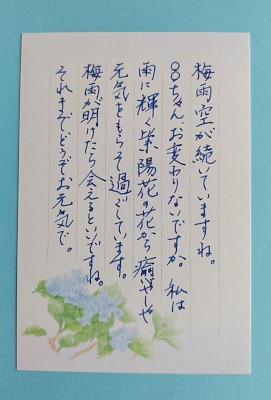 梅雨空が続いていますね。
○○ちゃん、お変わりないですか。私は
雨に輝く紫陽花の花から癒やしや
元気をもらって過ごしています。
梅雨が明けたら会えるといいですね。
それまでどうぞお元気で。